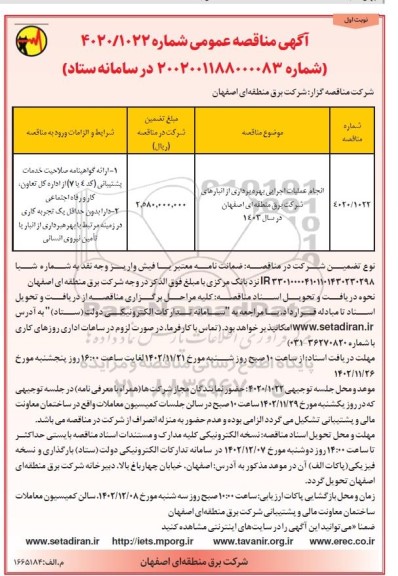 نوبت اول
آگهی مناقصه عمومی شماره ۴۰۲۰/۱۰۲۲
(شماره ۲۰۰۲۰۰۱۱۸۸۰۰۰۰۸۳ در سامانه ستاد)
شرکت مناقصه گزار: شرکت برق منطقه‌ای اصفهان
شماره مناقصه
موضوع مناقصه
مبلغ تضمین شرکت در مناقصه (ریال)
شرایط و الزامات ورود به مناقصه
۴۰۲۰/۱۰۲۲
انجام عملیات اجرایی بهره‌برداری از انبارهای
شرکت برق منطقه ای اصفهان
در سال ۱۴۰۳
۲,۵۸۰,۰۰۰,۰۰۰
۱-ارائه گواهینامه صلاحیت خدمات
پشتیبانی (کد ۴ یا ۷) از اداره کل تعاون،
کار و رفاه اجتماعی
۲-دارا بودن حداقل یک تجربه کاری
در زمینه مرتبط با بهره‌برداری از انبار یا
تأمین نیروی انسانی
نوع تضمین شرکت در مناقصه: ضمانت نامه معتبر یا فیش واریز وجه نقد به شماره شبا
IR۳۳۰۱۰۰۰۰۴۱۰۱۱۰۱۴۳۰۲۳۰۲۹۸ نزد بانک مرکزی با مبلغ فوق الذکر در وجه شرکت برق منطقه ای اصفهان
نحوه دریافت و تحویل اسناد مناقصه: کلیه مراحل برگزاری مناقصه از دریافت و تحویل
اسناد تا مبادله قرارداد، با مراجعه به "سامانه تدارکات الکترونیکی دولت (ستاد)" به آدرس
www.setadiran.ir امکانپذیر خواهد بود. (تماس با کارفرما، در صورت لزوم در ساعات اداری روزهای کاری
با شماره ۳۶۲۷۰۸۲۰-۰۳۱)
مهلت دریافت اسناد: از ساعت ۱۰ صبح روز شنبه مورخ ۱۴۰۲/۱۱/۲۱ لغایت ساعت ۱۶:۰۰ روز پنجشنبه مورخ
۱۴۰۲/۱۱/۲۶
موعد و محل جلسه توجیهی ۴۰۲۰/۱۰۲۲: حضور نمایندگان مجاز شرکت‌ها (همراه با معرفی نامه) در جلسه توجیهی
که در روز یکشنبه مورخ ۱۴۰۲/۱۱/۲۹ ساعت ۱۰ صبح در سالن جلسات کمیسیون معاملات واقع در ساختمان معاونت
مالی و پشتیبانی تشکیل می گردد الزامی بوده و عدم حضور به منزله انصراف از شرکت در مناقصه می باشد.
مهلت و محل تحویل اسناد مناقصه: نسخه الکترونیکی کلیه مدارک و مستندات اسناد مناقصه بایستی حداکثر
تا ساعت ۱۴:۰۰ روز دوشنبه مورخ ۱۴۰۲/۱۲/۰۷ در سامانه تدارکات الکترونیکی دولت (ستاد) بارگذاری و نسخه
فیزیکی (پاکات الف) آن در موعد مذکور به آدرس: اصفهان، خیابان چهارباغ بالا، دبیرخانه شرکت برق منطقه‌ای
اصفهان تحویل گردد.
زمان و محل بازگشایی پاکات ارزیابی: ساعت ۱۰:۰۰ صبح روز سه شنبه مورخ ۱۴۰۲/۱۲/۰۸، سالن کمیسیون معاملات
ساختمان معاونت مالی و پشتیبانی شرکت برق منطقه ای اصفهان
ضمناً «می‌توانید این آگهی را در سایت‌های اینترنتی مشاهده کنید
www.setadiran.ir http://iets.mporg.ir www.tavanir.org.ir www.erec.co.ir
شرکت برق منطقه‌ای اصفهان
م.الف: ۱۶۶۵۱۸۴